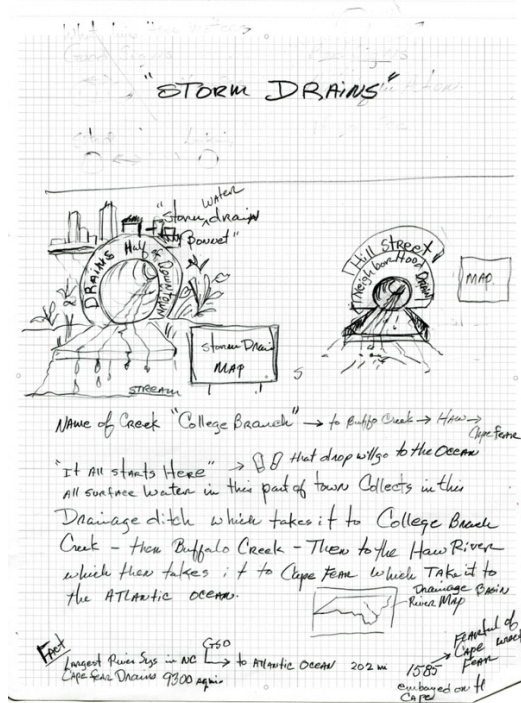 "STORM DRAINS"
WATER
"Storm drain
Bonnet"
DRAINS Half of Downtown
Hill STREET
Neighborhood DRAIN
MAP
Storm Drain
MAP
STREAM
NAME of Creek "College Branch" → to Buffo Creek → HAW →
Cape FEAR
"It All starts Here" → that drop will go to the OCEAN
All surface water in this part of town Collects in this
Drainage ditch which takes it to College Branch
Creek - then Buffalo Creek - Then to the Haw River
which then takes it to Cape FEAR which TAKE it to
the ATLANTIC OCEAN.
Drainage BASIN
River MAP
Fact
Largest River Sys in NC
GSO
→ to Atlantic OCEAN 202 mi
Cape Fear Drains 9300 sqmi
1585
FEARful of
Cape wreck
FEAR
embayed on
CAPE